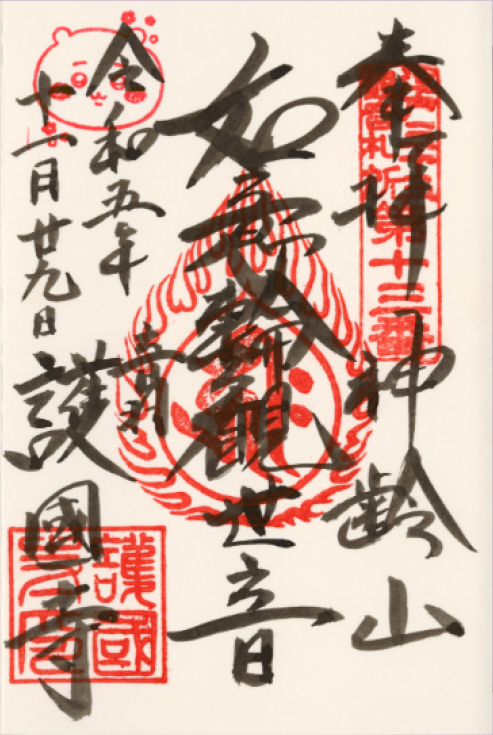 奉拝
札所第十三番
神齢山
如意輪観世音
令和五年
十一月廿九日
護國寺
護國
寺印